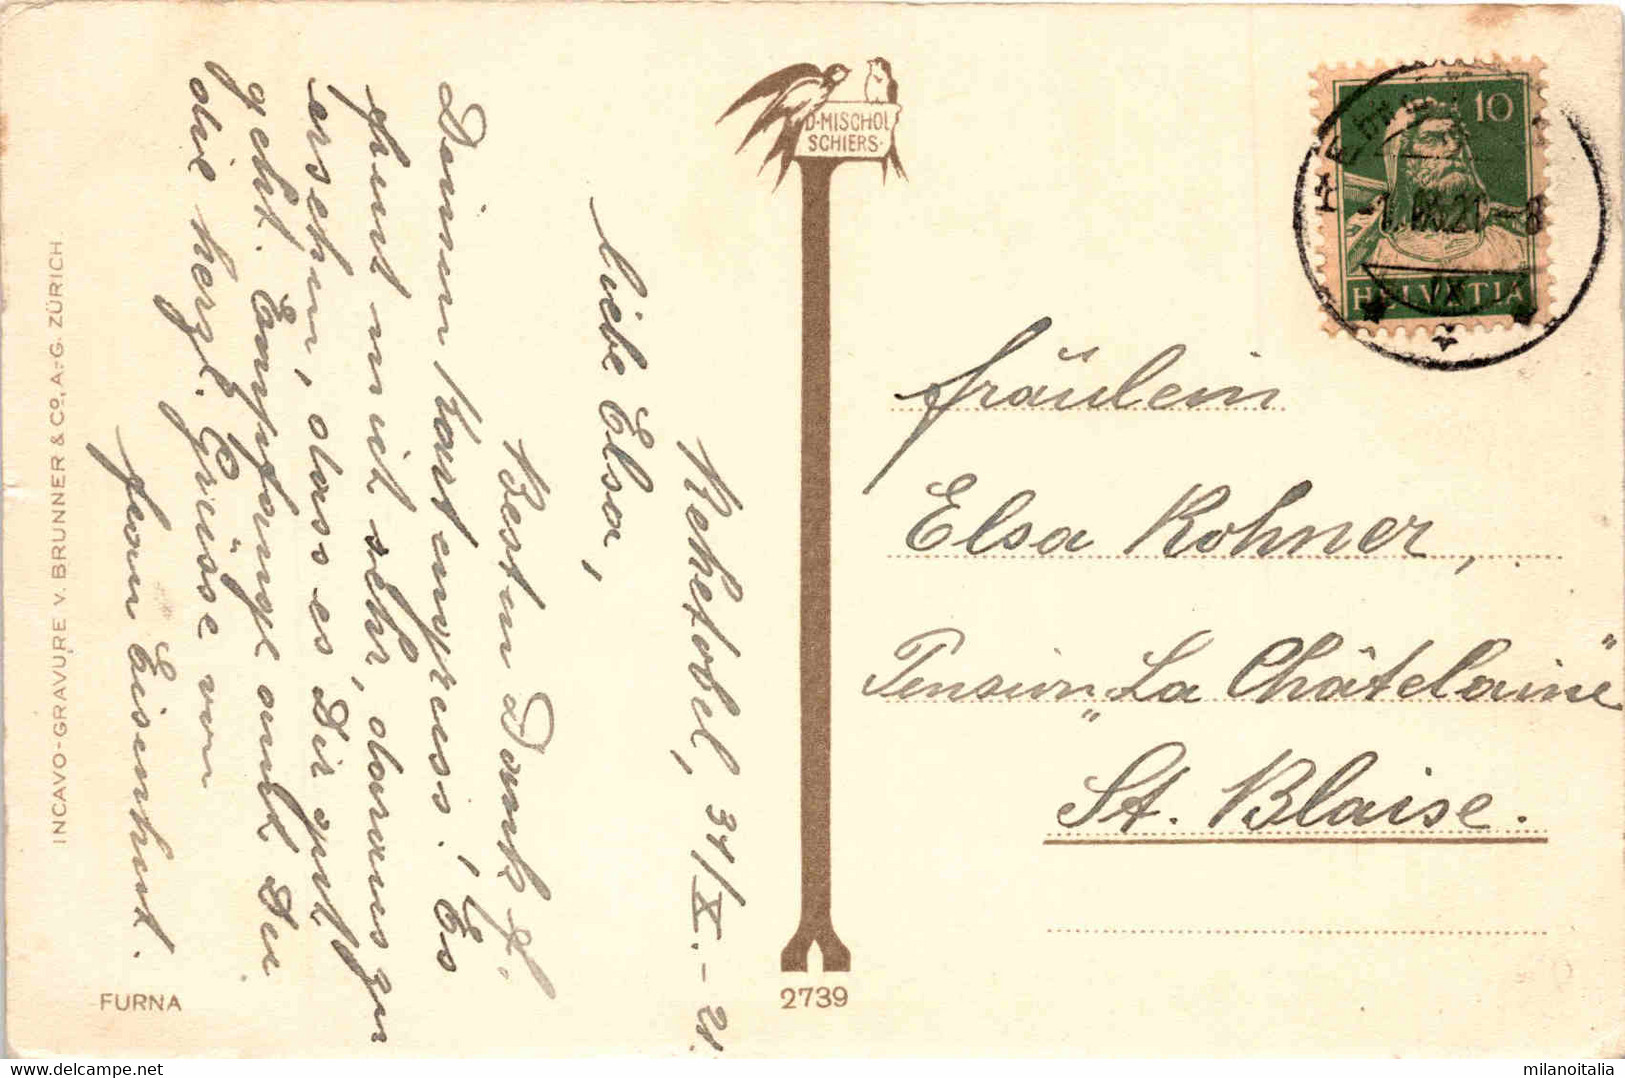 Rehetobel, 31/X.-21.
Liebe Elsa,
Besten Dank f.
Deinen Kartengruss! Es
freut mich sehr, daraus zu
ersehen, dass es Dir gut
geht. Empfange auch Du
die herzl. Grüsse von
Eisenhut.
D. MISCHOL
SCHIERS.
2739
FURNA
INCAVO-GRAVURE V. BRUNNER & Co, A.-G. ZÜRICH.
10
HELVETIA
Fräulein
Elsa Rohner,
Pension „La Châtelaine"
St. Blaise.
milanoitalia